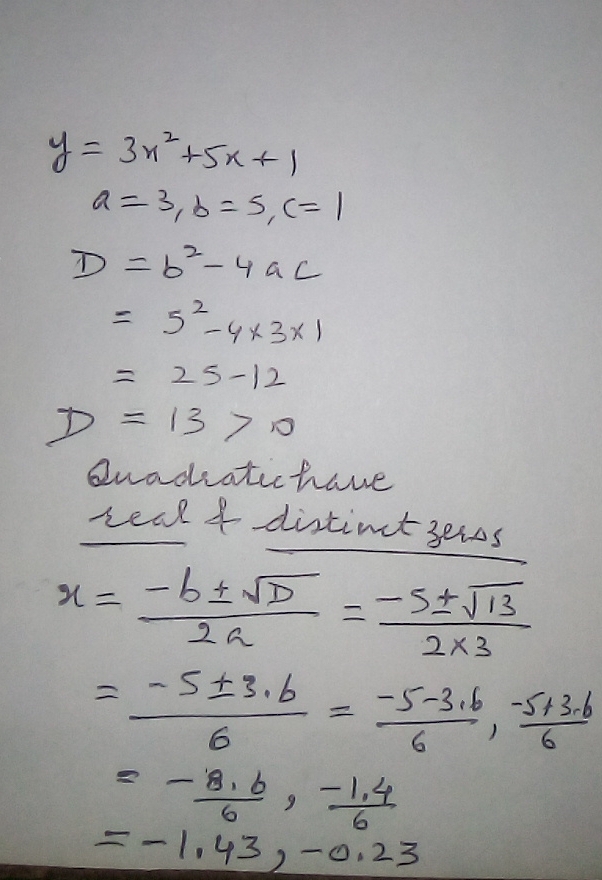 y = 3x²+5x+1
a=3, b=5, c=1
D = b²-4ac
= 5²-4×3×1
= 25-12
D = 13 > 0
Quadratic have
real & distinct zeros
x = (-b ± √D)/(2a) = (-5 ± √13)/(2×3)
= (-5 ± 3.6)/6 = (-5-3.6)/6, (-5+3.6)/6
= -8.6/6, -1.4/6
= -1.43, -0.23